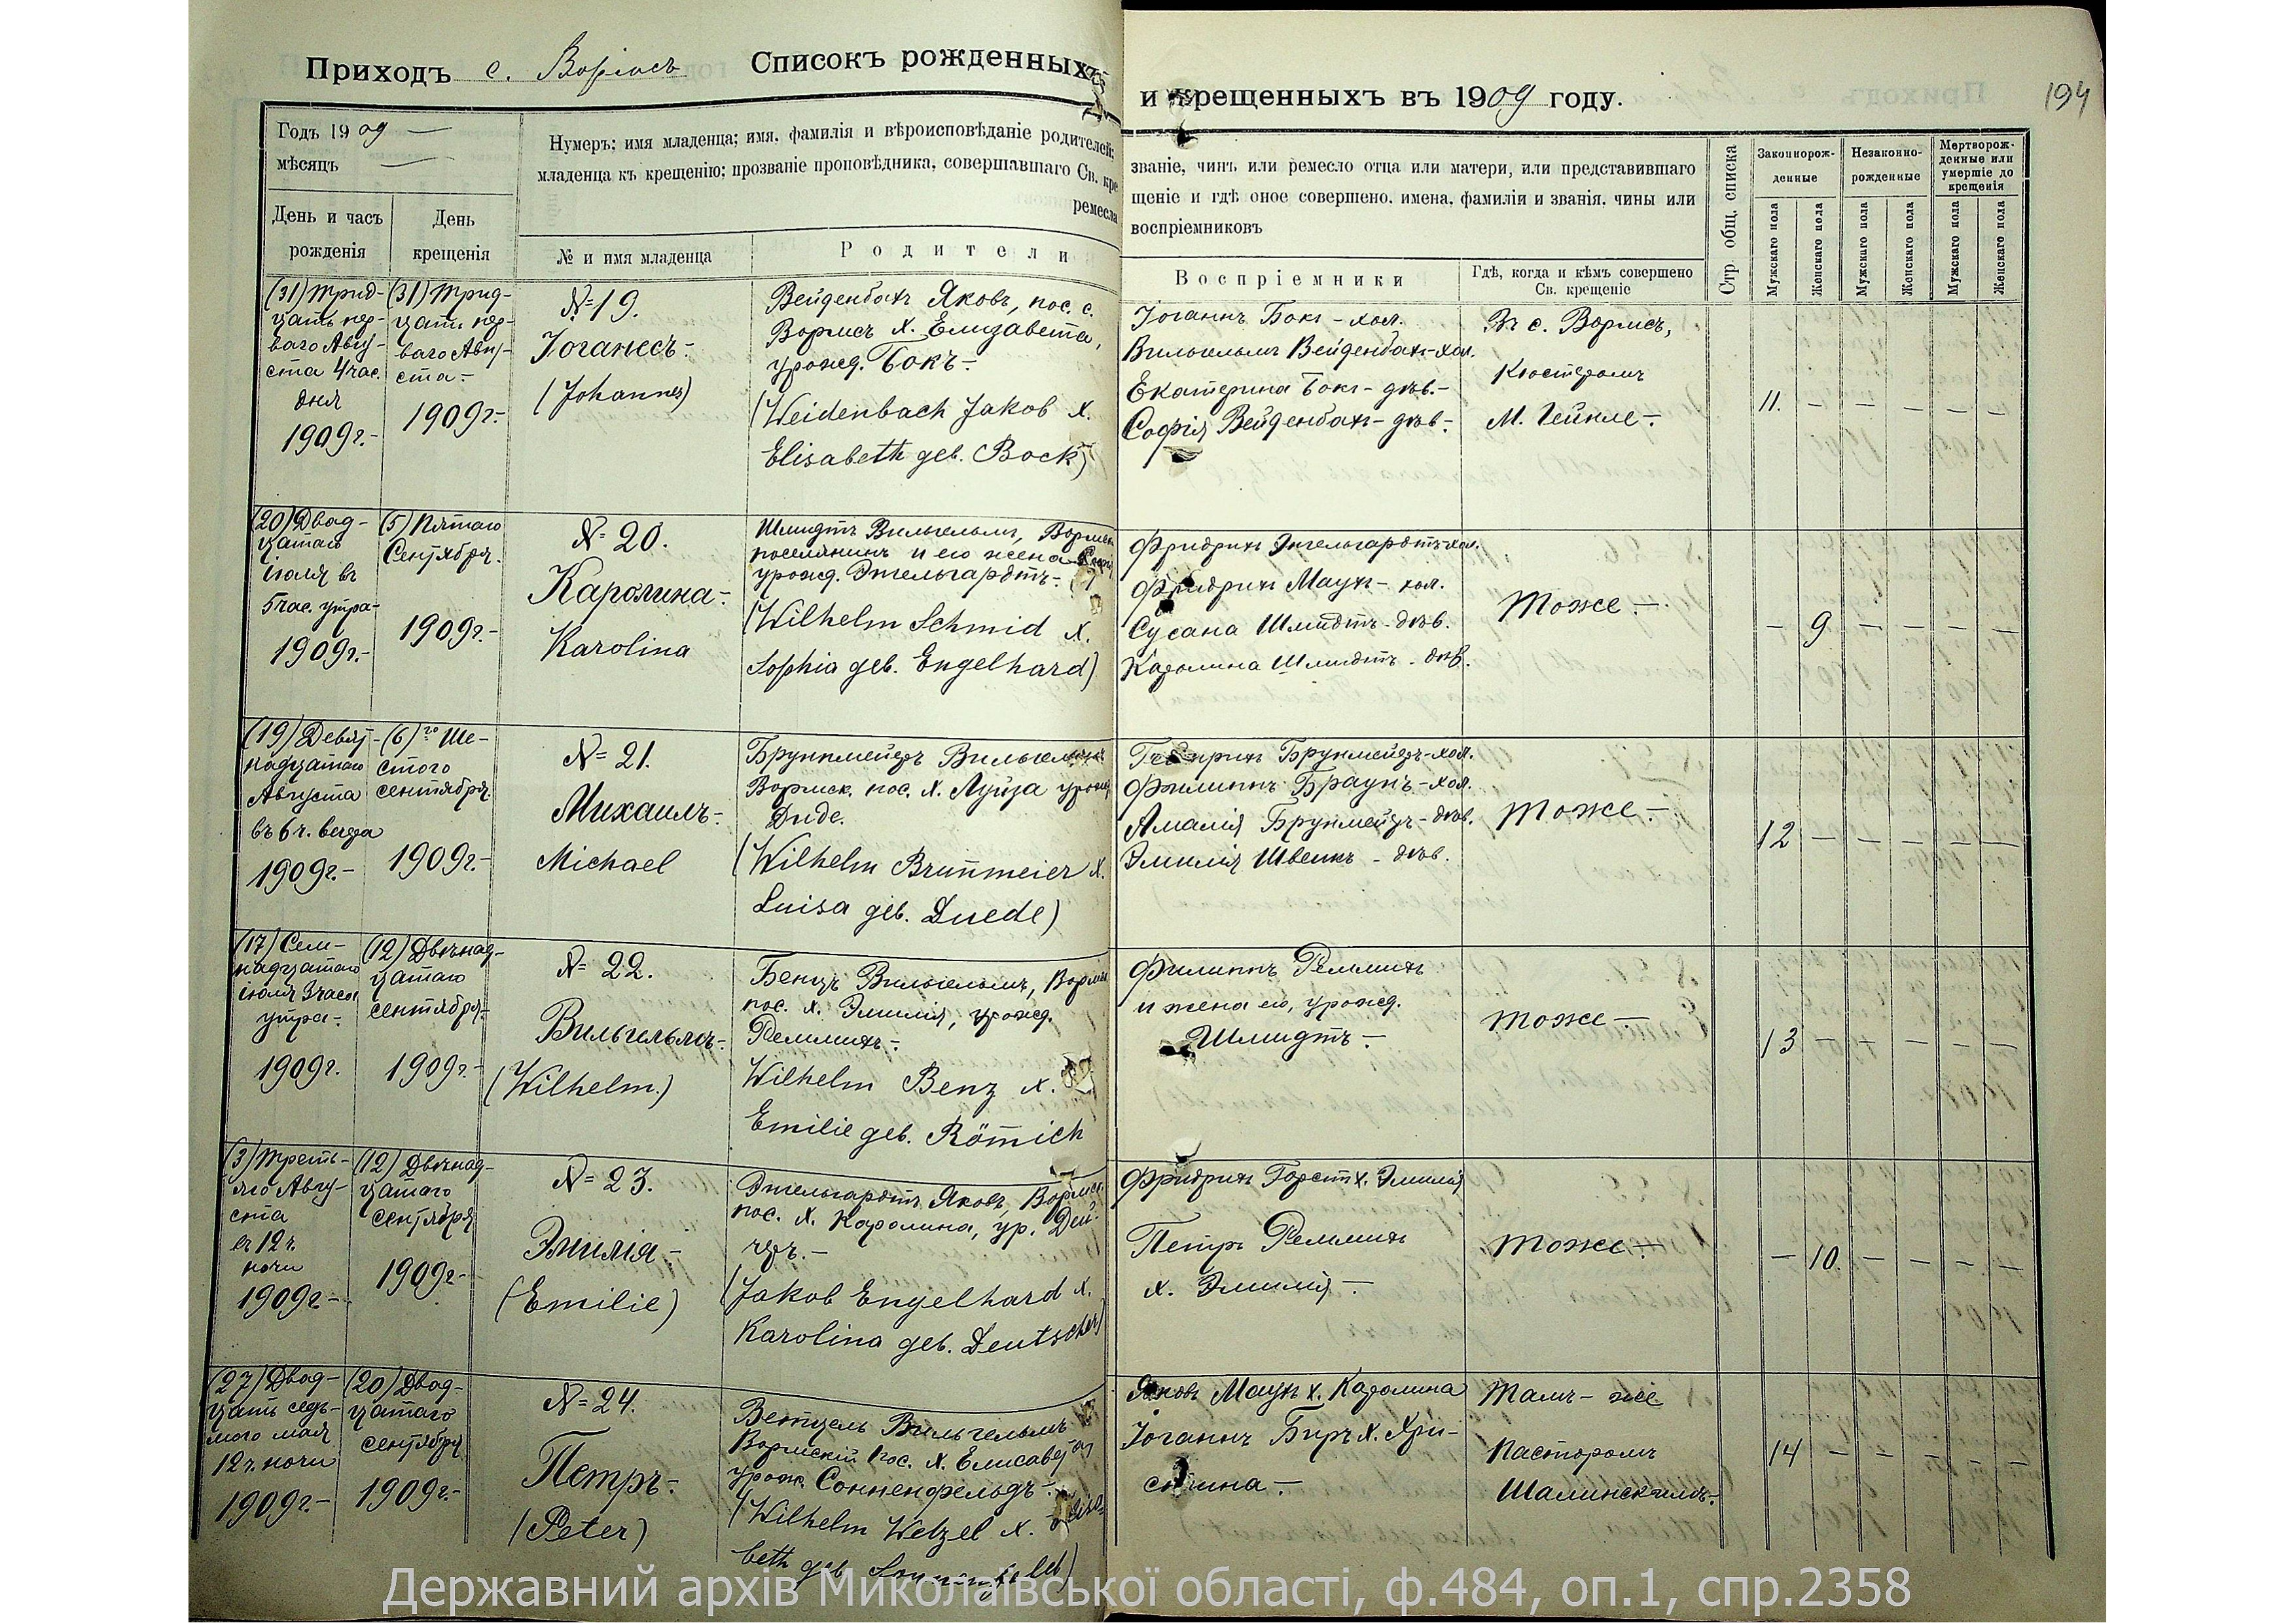 Приходъ с. Вормсъ Списокъ рожденныхъ
и крещенныхъ въ 1909 году.
194
Годъ 1909 —
мѣсяцъ —
Нумеръ; имя младенца; имя, фамилія и вѣроисповѣданіе родителей;
младенца къ крещенію; прозваніе проповѣдника, совершавшаго Св. кре
ремесла
званіе, чинъ или ремесло отца или матери, или представившаго
щеніе и гдѣ оное совершено, имена, фамиліи и званія, чины или
воспріемниковъ
День и часъ
рожденія
День
крещенія
№ и имя младенца
Родители
Воспріемники
Гдѣ, когда и кѣмъ совершено
Св. крещеніе
Стр. общ. списка
Законнорож-
денные
Незаконно-
рожденные
Мертворож-
денные или
умершіе до
крещенія
Мужскаго пола
Женскаго пола
Мужскаго пола
Женскаго пола
Мужскаго пола
Женскаго пола
(31) Трид-
цать пер-
ваго Авгу-
ста 4 час.
дня
1909 г.-
(31) Трид-
цать пер-
ваго Авгу-
ста-
1909 г.-
№ 19.
Іоганесъ-
(Johannes)
Вейденбахъ Яковъ, пос. с.
Вормсъ х. Елизавета,
урожд. Бокъ-
(Weidenbach Jakob x.
Elisabeth geb. Bock)
Іоганнъ Бокъ - хол.
Вильгельмъ Вейденбахъ-хол.
Екатерина Бокъ - дѣв.-
Софія Вейденбахъ - дѣв-
Въ с. Вормсъ,
Кюстеромъ
М. Гейнле-
11. — — — — —
(20) Двад-
цатаго
іюля въ
5 час. утра-
1909 г.-
(5) Пятаго
Сентября.
1909 г.-
№ 20.
Каролина-
Karolina
Шмидтъ Вильгельмъ, Вормск
поселянинъ и его жена
урожд. Энгельгардтъ-
(Wilhelm Schmid x.
Sophia geb. Engelhard)
Фридрихъ Энгельгардтъ-хол.
Фридрихъ Маухъ - хол.
Сусана Шмидтъ - дѣв.
Каролина Шмидтъ - дѣв.
Тоже-
— 9 — — — —
(19) Девят-
надцатаго
Августа
въ 6 ч. вечера
1909 г.-
(6) го Ше-
стого
сентября
1909 г.-
№ 21.
Михаилъ-
Michael
Брунмейеръ Вильгельмъ
Вормск. пос. х. Луиза урожд
Диде.
(Wilhelm Brunmeier x.
Luisa geb. Duede)
Генрихъ Брунмейеръ-хол.
Филиппъ Браунъ - хол.
Амалія Брунмейеръ - дѣв.
Эмилія Швенкъ - дѣв.
Тоже-
12 — — — — —
(17) Сем-
надцатаго
іюля 3 часа
утра-
1909 г.
(12) Двѣнад-
цатаго
сентября-
1909 г.-
№ 22.
Вильгельмъ-
(Wilhelm.)
Бенцъ Вильгельмъ, Вормск
пос. х. Эмилія, урожд.
Реммихъ-
Wilhelm Benz x.
Emilie geb. Römich
Филиппъ Реммихъ
и жена его, урожд.
Шмидтъ-
Тоже-
13 — — — — —
(3) Треть-
яго Авгу-
ста
въ 12 ч.
ночи
1909 г-
(12) Двѣнад-
цатаго
сентября
1909 г-
№ 23.
Эмилія-
(Emilie)
Энгельгардтъ Яковъ, Вормск.
пос. х. Каролина, ур. Дей-
черъ.-
(Jakob Engelhard x.
Karolina geb. Deutscher)
Фридрихъ Горстъ х. Эмилія
Петръ Реммихъ
х. Эмилія-
Тоже-
— 10. — — — —
(27) Двад-
цать седь-
мого мая
12 ч. ночи
1909 г.-
(20) Двад-
цатаго
сентября
1909 г.-
№ 24.
Петръ-
(Peter)
Ветцель Вильгельмъ
Вормскій пос. х. Елисавета
урож. Сонненфельдъ-
(Wilhelm Wetzel x. Elisa
beth geb. Sonnenfeld)
Яковъ Маухъ х. Каролина
Іоганнъ Биръ х. Хри-
стина-
Тамъ-же
Пасторомъ
Шалинскимъ-
14 — — — — —
Державний архів Миколаївської області, ф.484, оп.1, спр.2358